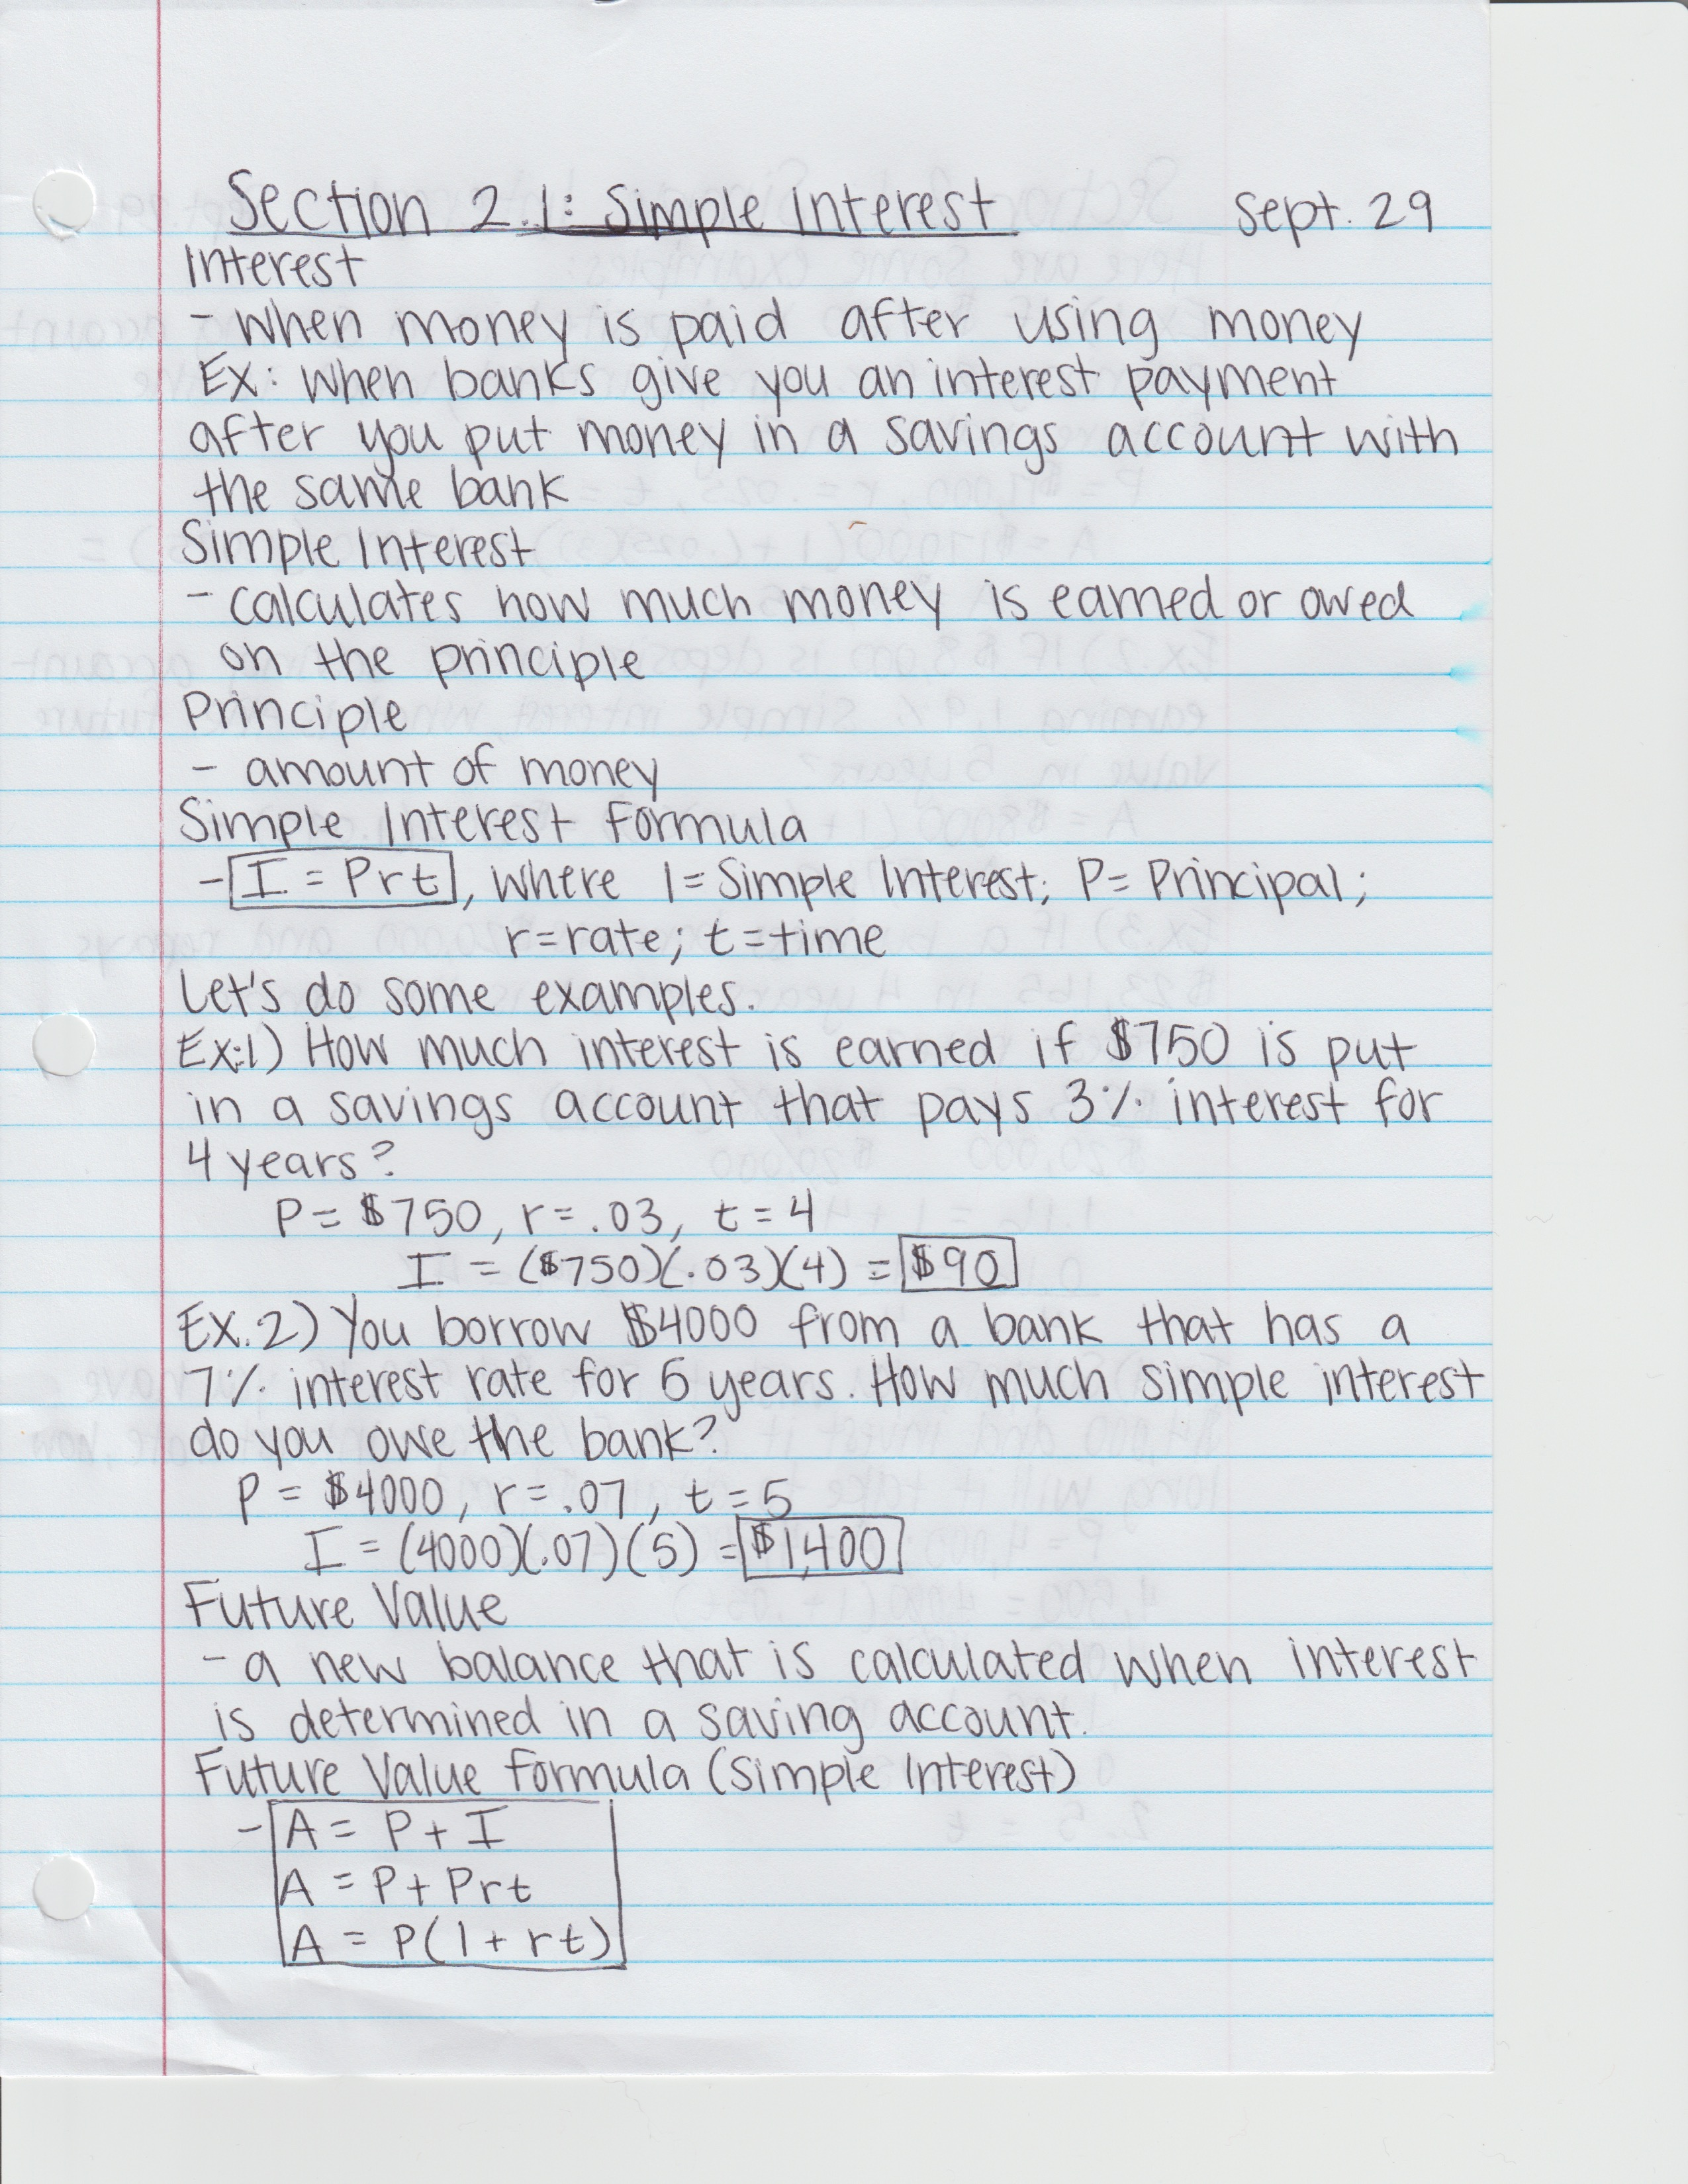 Section 2.1: Simple Interest Sept. 29
Interest
- When money is paid after using money
Ex: When banks give you an interest payment
after you put money in a savings account with
the same bank
Simple Interest
- calculates how much money is earned or owed
on the principle
Principle
- amount of money
Simple Interest Formula
- I = Prt, where I = Simple Interest; P = Principal;
r = rate; t = time
Let's do some examples.
Ex:1) How much interest is earned if $750 is put
in a savings account that pays 3% interest for
4 years?
P = $750, r = .03, t = 4
I = ($750)(.03)(4) = $90
Ex.2) You borrow $4000 from a bank that has a
7% interest rate for 5 years. How much simple interest
do you owe the bank?
P = $4000, r = .07, t = 5
I = (4000)(.07)(5) = $1,400
Future Value
- a new balance that is calculated when interest
is determined in a saving account.
Future Value Formula (Simple Interest)
- A = P + I
A = P + Prt
A = P(1 + rt)